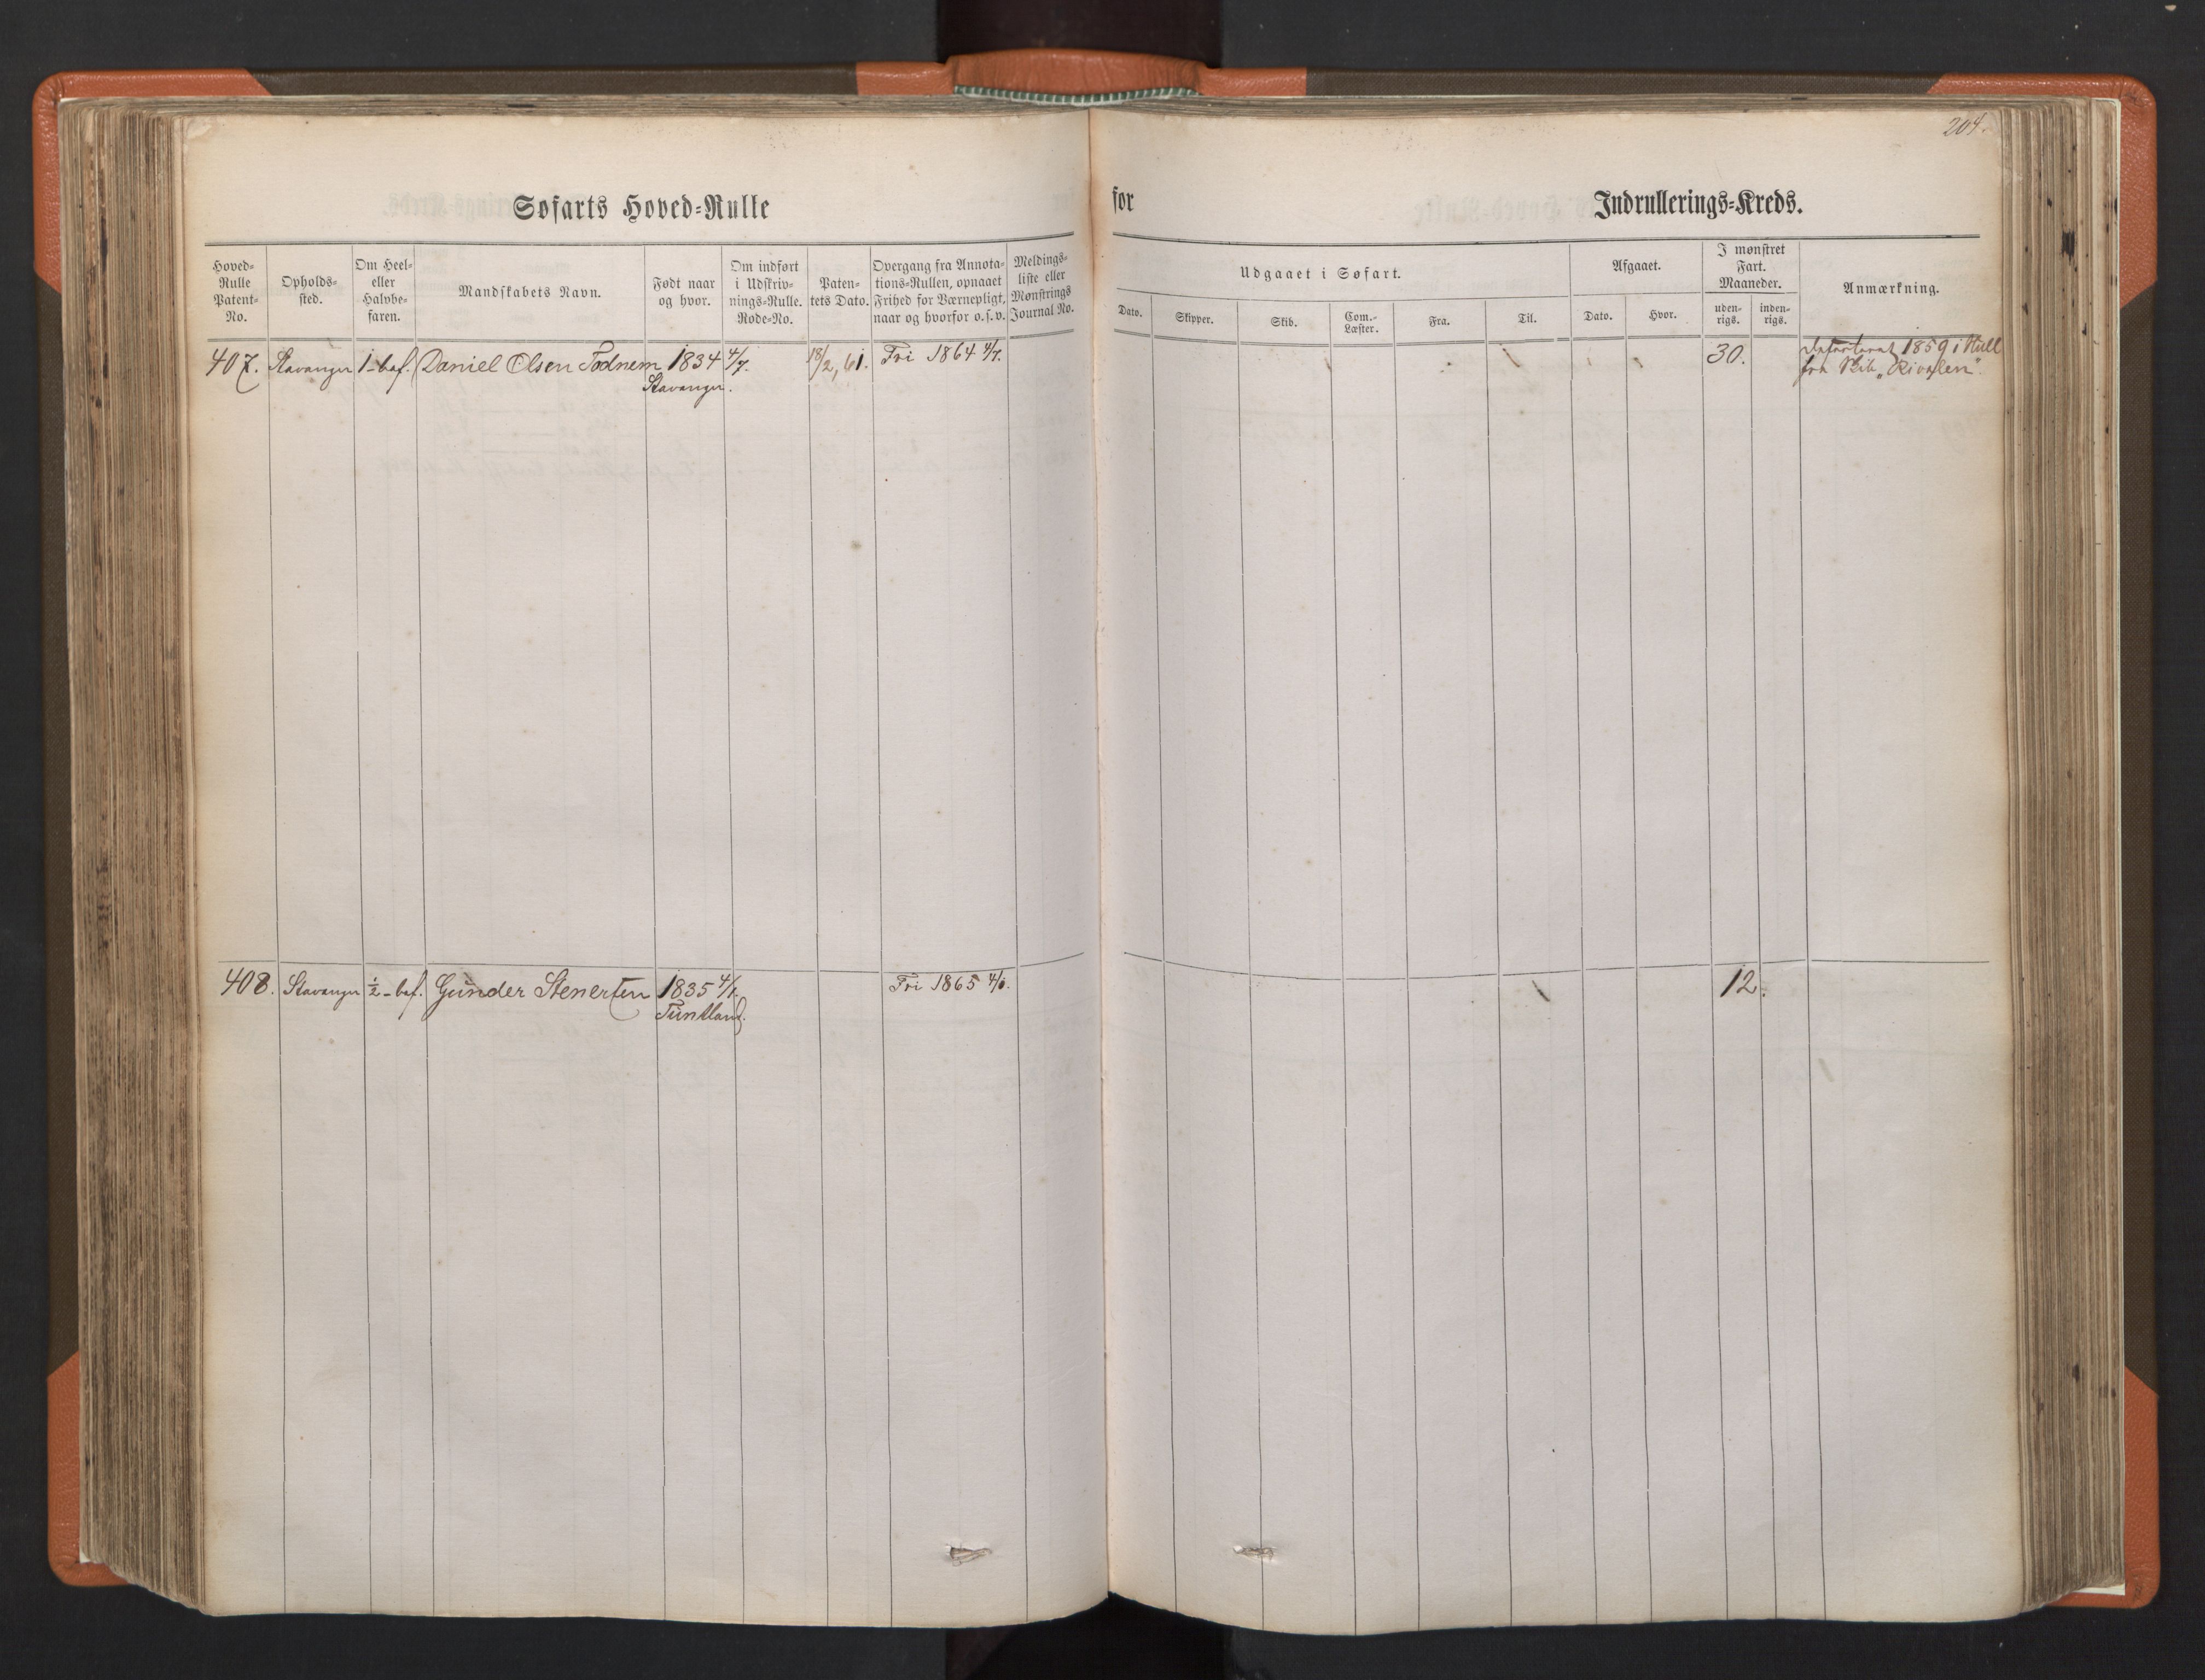 204.
Søfarts Hoved-Rulle
for
Indrullerings-Kreds.
Hoved-
Rulle
Patent-
No.
Opholds-
sted.
Om Heel-
eller
Halvbe-
faren.
Mandskabets Navn.
Født naar
og hvor.
Om indført
i Udskriv-
nings-Rulle.
Rode-No.
Paten-
tets Dato.
Overgang fra Annota-
tions-Rullen, opnaaet
Frihed for Værnepligt,
naar og hvorfor o.s.v.
Meldings-
liste eller
Mønstrings
Journal No.
Udgaaet i Søfart.
Dato.
Skipper.
Skib.
Com.-
Læster.
Fra.
Til.
Afgaaet.
Dato.
Hvor.
I mønstret
Fart.
Maaneder.
uden-
rigs.
inden-
rigs.
Anmærkning.
407. Stavanger 1-bef. Daniel Olsen Todnem 1834 4/7. 18/2, 61. Fri 1864 4/7. 30. 1859 i Hull
Stavanger. fra Skib „Rivalen".
408. Stavanger ½-bef. Gunder Stenersen 1835 Fri 1865 12.